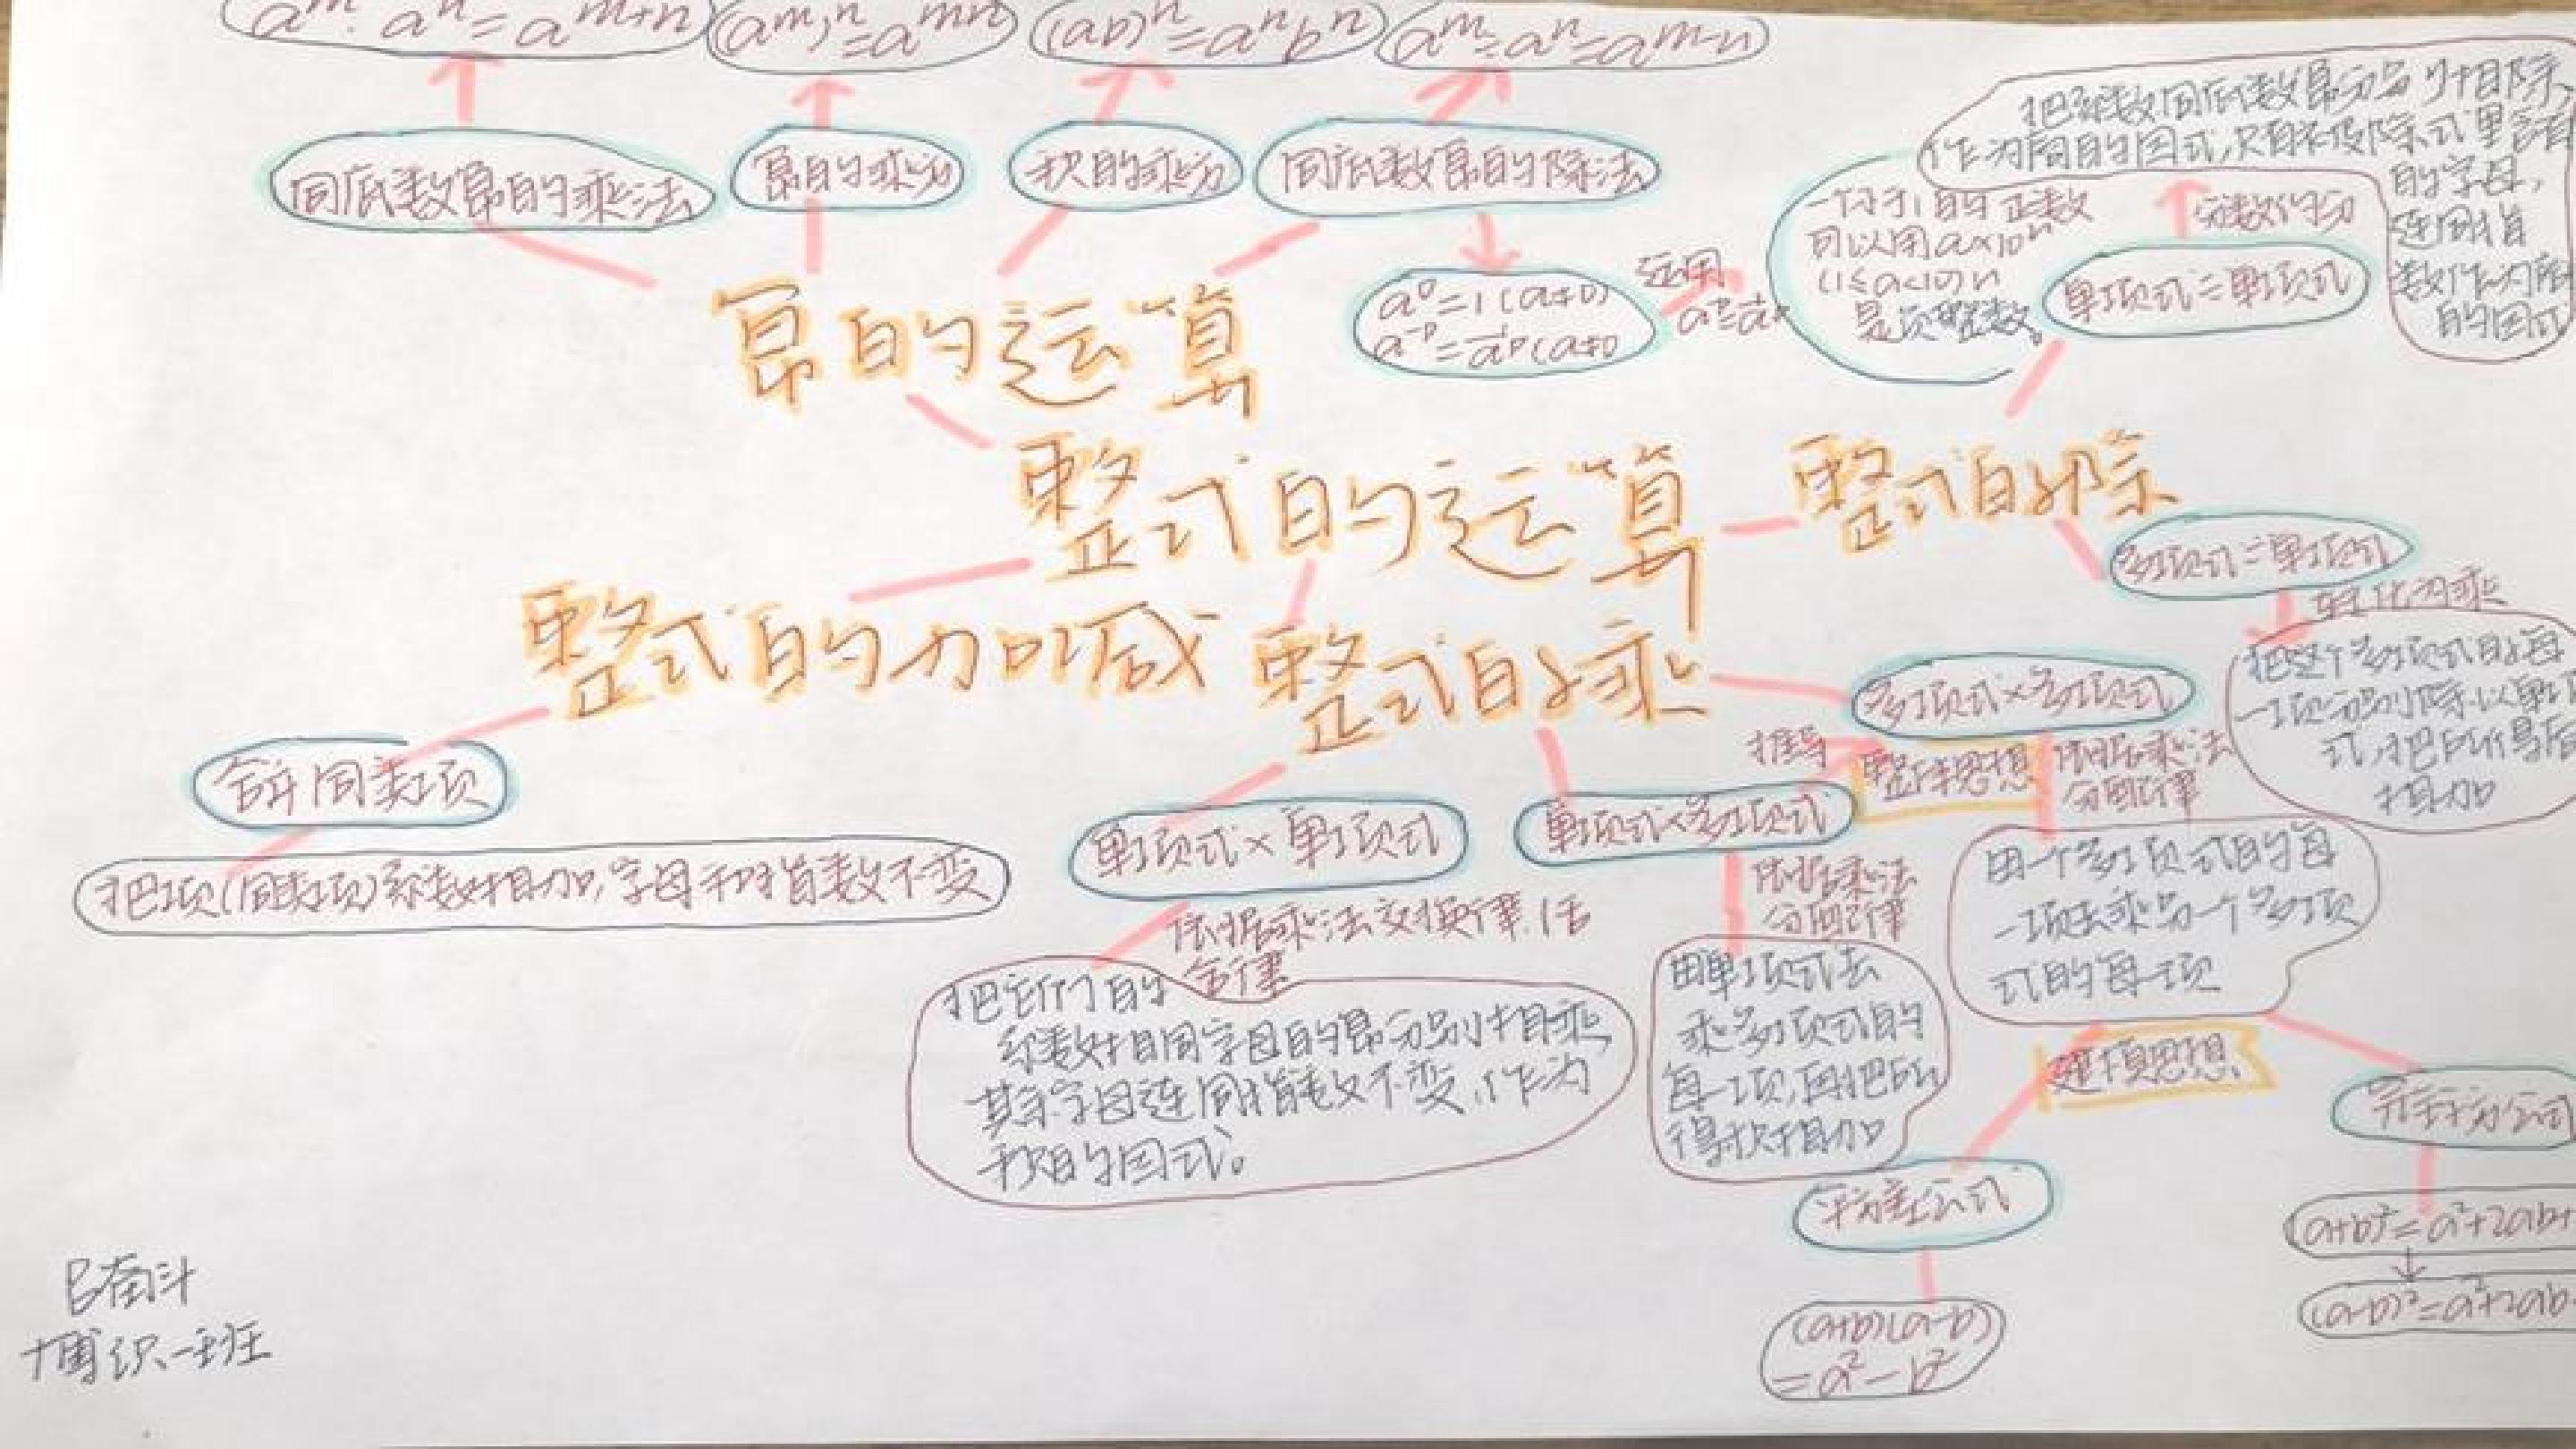 a^m · a^n = a^{m+n}
(a^m)^n = a^{mn}
(ab)^n = a^n b^n
a^m ÷ a^n = a^{m-n}
同底数幂的乘法
幂的乘方
积的乘方
同底数幂的除法
a^0 = 1 (a≠0)
a^{-p} = 1/a^p (a≠0
运用
可以用a×10^n
(1≤a<10) n
是负整数。
把系数同底数幂分别相除,
作为商的因式,只有被除式里含有
的字母,
连同指
数作为商
的因式
单项式÷单项式
幂的运算
整式的运算
整式的除
整式的加减
整式的乘
多项式÷单项式
把这个多项式的每
一项分别除以单项
式,把所得后
相加
合并同类项
把项(同类项)系数相加,字母和指数不变
单项式×单项式
依据乘法交换律.结
合律
把它们的
系数相同字母的幂分别相乘,
其余字母连同指数不变,作为
积的因式。
单项式×多项式
依据乘法
分配律
用单项式去
乘多项式的
每一项,再把所
得积相加
多项式×多项式
推导
整体思想
依据乘法
分配律
用一个多项式的每
一项去乘另一个多项
式的每一项
建模思想
平方差公式
(a+b)(a-b)
=a²-b²
完全平方公式
(a+b)²=a²+2ab+
(a-b)²=a²+2ab
B奋斗
博识一班